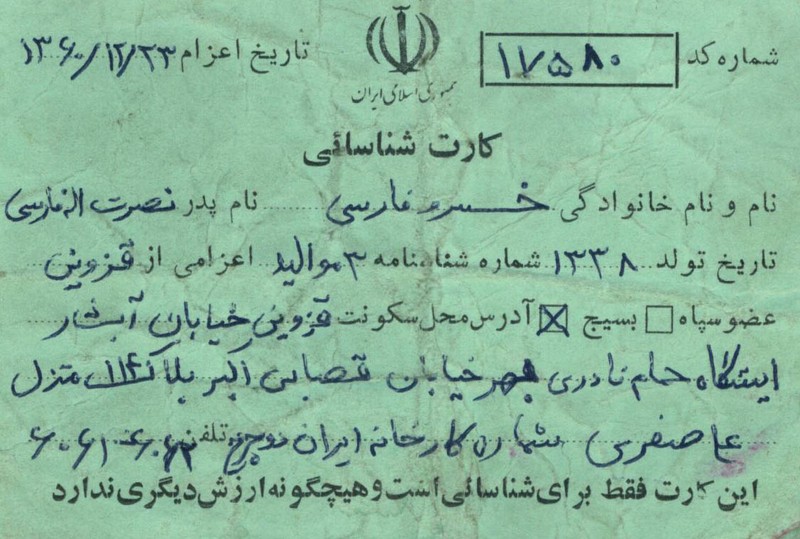 شماره کد ۱۷۵۸۰
تاریخ اعزام ۱۳۶۰/۱۲/۲۳
جمهوری اسلامی ایران
کارت شناسائی
نام و نام خانوادگی خسرو فارسی نام پدر نصرت اله فارسی
تاریخ تولد ۱۳۳۸ شماره شناسنامه ۳ موالید اعزامی از قزوین
عضو سپاه بسیج آدرس محل سکونت قزوین خیابان
ایستگاه حمام نادری خیابان قصابی اکبر پلاک ۱۱۴ منزل
شماره کارخانه ایران تلفن
این کارت فقط برای شناسائی است و هیچگونه ارزش دیگری ندارد